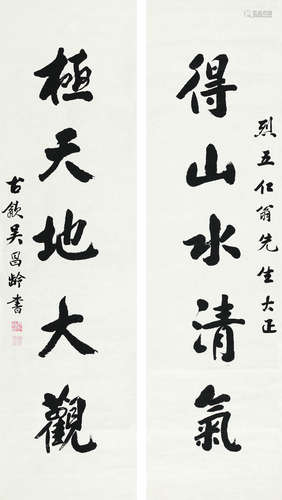 烈五仁翁先生大正
得山水清氣
極天地大觀
古歙吳昌齡書